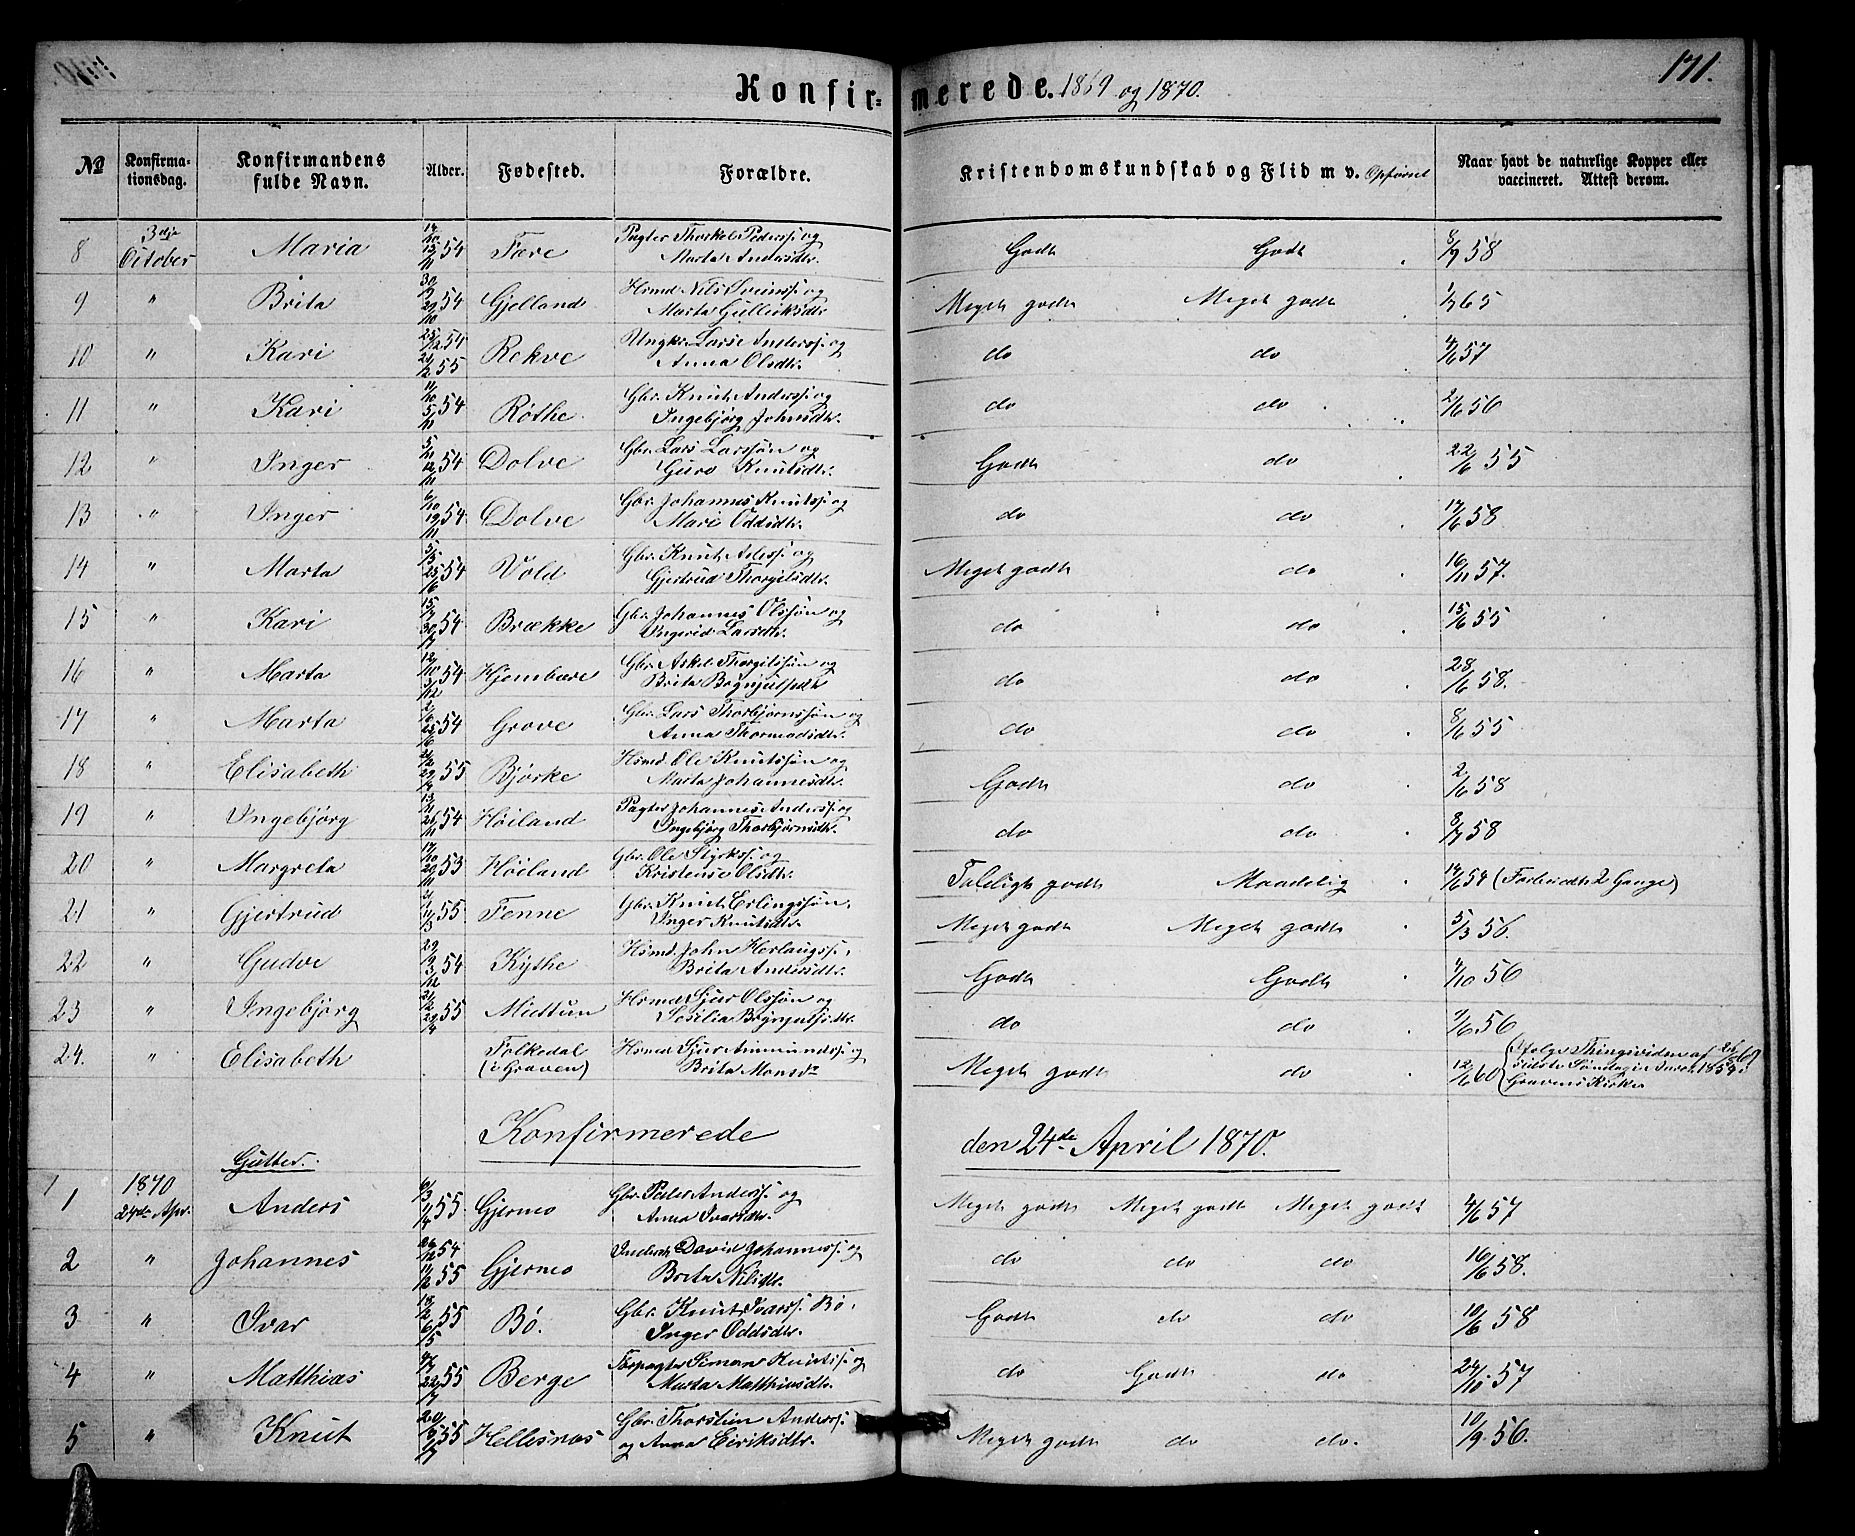 Konfir- merede. 1869 og 1870. 171.
№ Konfirma-tionsdag. Konfirmandens fulde Navn. Alder. Fødested. Forældre. Kristendomskundskab og Flid m v. Opførsel Naar havt de naturlige Kopper eller vaccineret. Attest derom.
8 3die October Maria 54 Fære Pagter Thorkel Pederss. og Marta Andersdtr. Godt Godt 8/9 58
9 " Brita 54 Gjelland Hsmd. Nils Sveinss. og Marta Gulleiksdtr. Meget godt Meget godt 65
10 " Kari 54 55 Rekve Ungkr. Lars Anderss. og Anna Olsdtr. do do 57
11 " Kari 54 Røthe Gbr. Knut Anderss. og Ingebjørg Johnsdtr. do do 2/6 56
12 " Inger 54 Dolve Gbr. Lars Larssøn og Guro Knutsdtr. Godt do 22/6 55
13 " Inger 54 Dolve Gbr. Johannes Knutss. og Mari Oddsdtr. do do 17/6 58
14 " Marta 54 Vold Gbr. Knut og Gjertrud Thorgilsdtr. Meget godt do 16/11 57.
15 " Kari 54 Brække Gbr. Johannes Olssøn og Ingerid Larsdtr. do do 15/6 55
16 " Marta 54 Gbr. Askel Thorgilssøn og Brita do do 28/6 58.
17 " Marta 54 Grove Gbr. Lars Thorbjørnssøn og Anna Thormodsdtr. do do 8/6 55
18 " Elisabeth 55 Bjørke Hsmd. Ole Knutssøn og Marta Johannesdtr. Godt do 2/6 58
19 " Ingebjørg 54 Høiland Pagter Johannes Anderss. og Ingebjørg Thorbjørnsdtr. do do 58
20 " Margreta 53 Høiland Gbr. Ole Styrkss. og Kristense Olsdtr. Taleligt godt Maadelig 54 (Forbudt 2 Gange)
21 " Gjertrud 55 Tenne Gbr. Knut Erlingssøn, Inger Knutsdtr. Meget godt Meget godt 5/3 56.
22 " Gudve 54 Kythe Hsmd. John Herlaugss., Brita Andersdtr. Godt Godt 56
23 " Ingebjørg 55 Midtun Hsmd. Sjur Olssøn og Sesilia do do 56
24. " Elisabeth Folkedal (i Graven) Hsmd. Sjur Ammundss. og Brita Monsdr Meget godt do 12/6 60 (Ifølge Thingsvidne af sidste Søndag i 1854 i Gravens Kirke
Konfirmerede den 24de April 1870.
Gutter.
1 1870 24de Apr. Anders 55 Gjerme Gbr. Peder Anderss. og Anna Ivarsdtr. Meget godt Meget godt Meget godt 57
2 " Johannes 54 55 Gjerme David Johanness. og Brita Nilsdtr. do do do 16/6 58.
3 " Ivar 55 Bø. Gbr. Knut Ivarss. Bø, Inger Oddsdtr. Godt do do 10/6 58
4 " Matthias 55 Berge Simon Knutss. og Marta Matthiasdtr. do Godt do 24/10 57
5 " Knut 55 Hellesnæs Gbr. Thorstein Anderss. og Anna Eiriksdtr. Meget godt do do. 10/9 56.